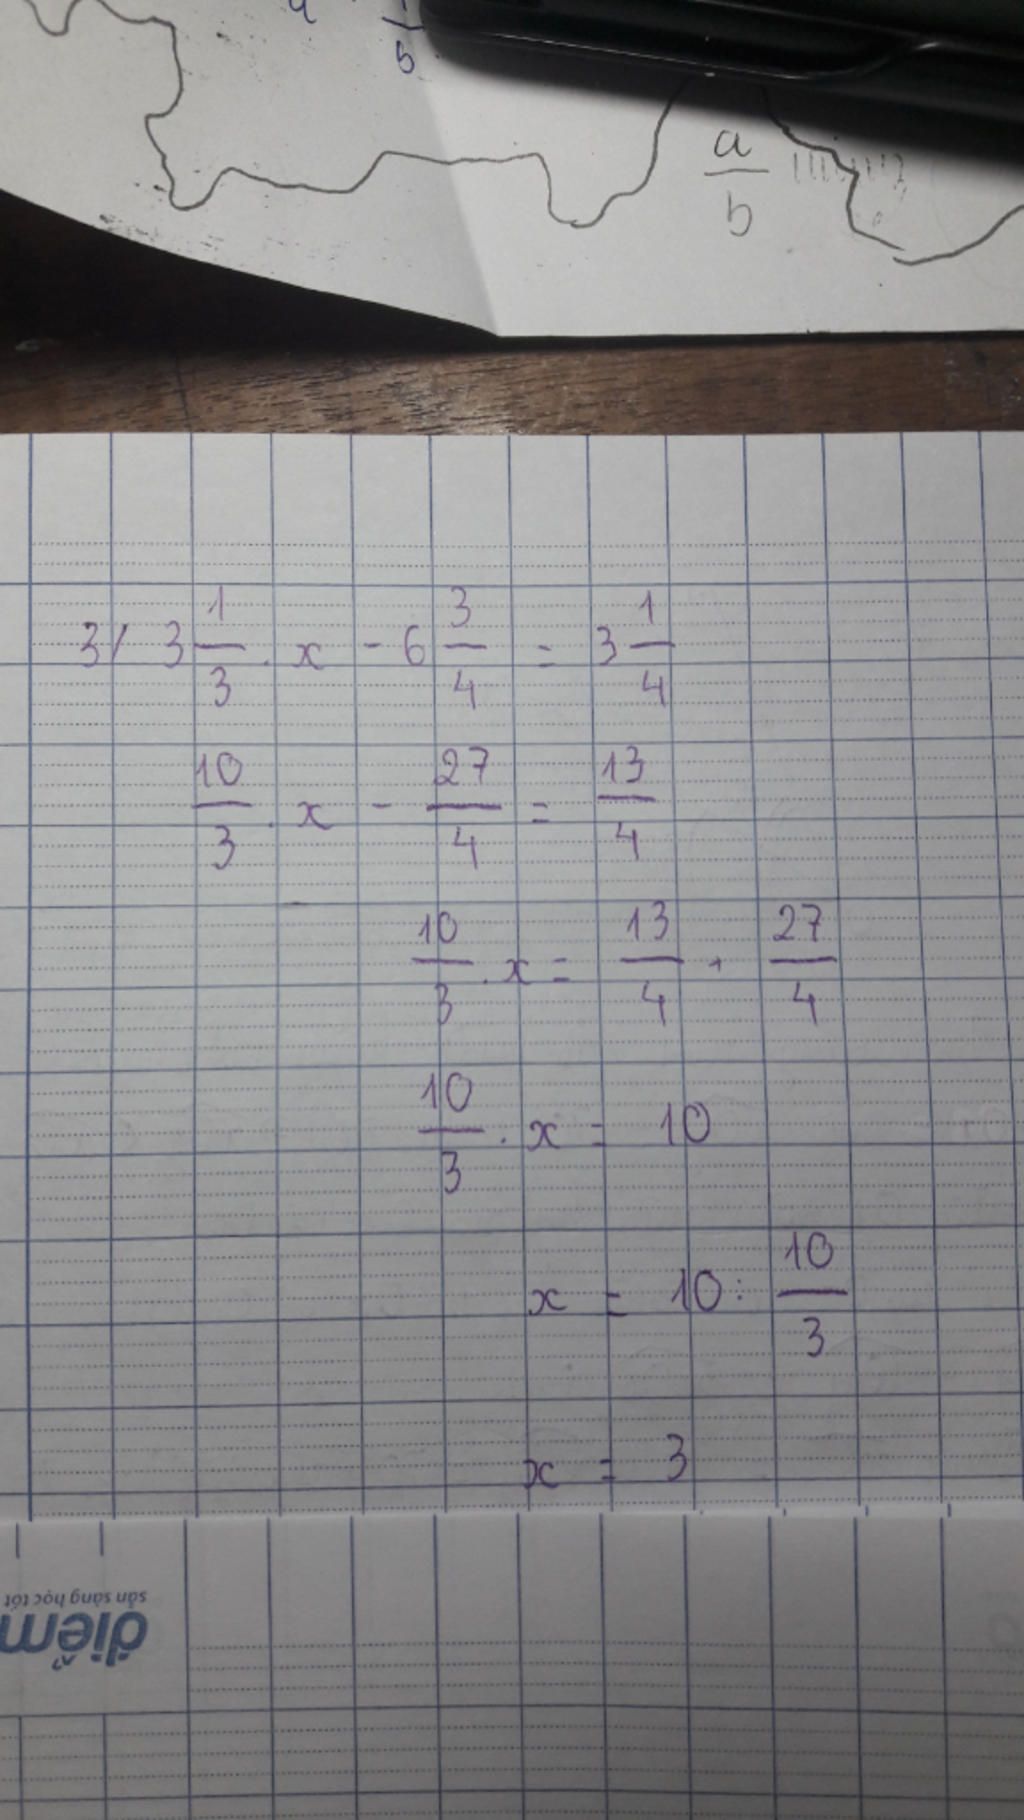 a/b
b
3/ 3 1/3 . x - 6 3/4 = 3 1/4
10/3 . x - 27/4 = 13/4
10/3 . x = 13/4 + 27/4
10/3 . x = 10
x = 10 : 10/3
x = 3
điểm
sẵn sàng học tốt